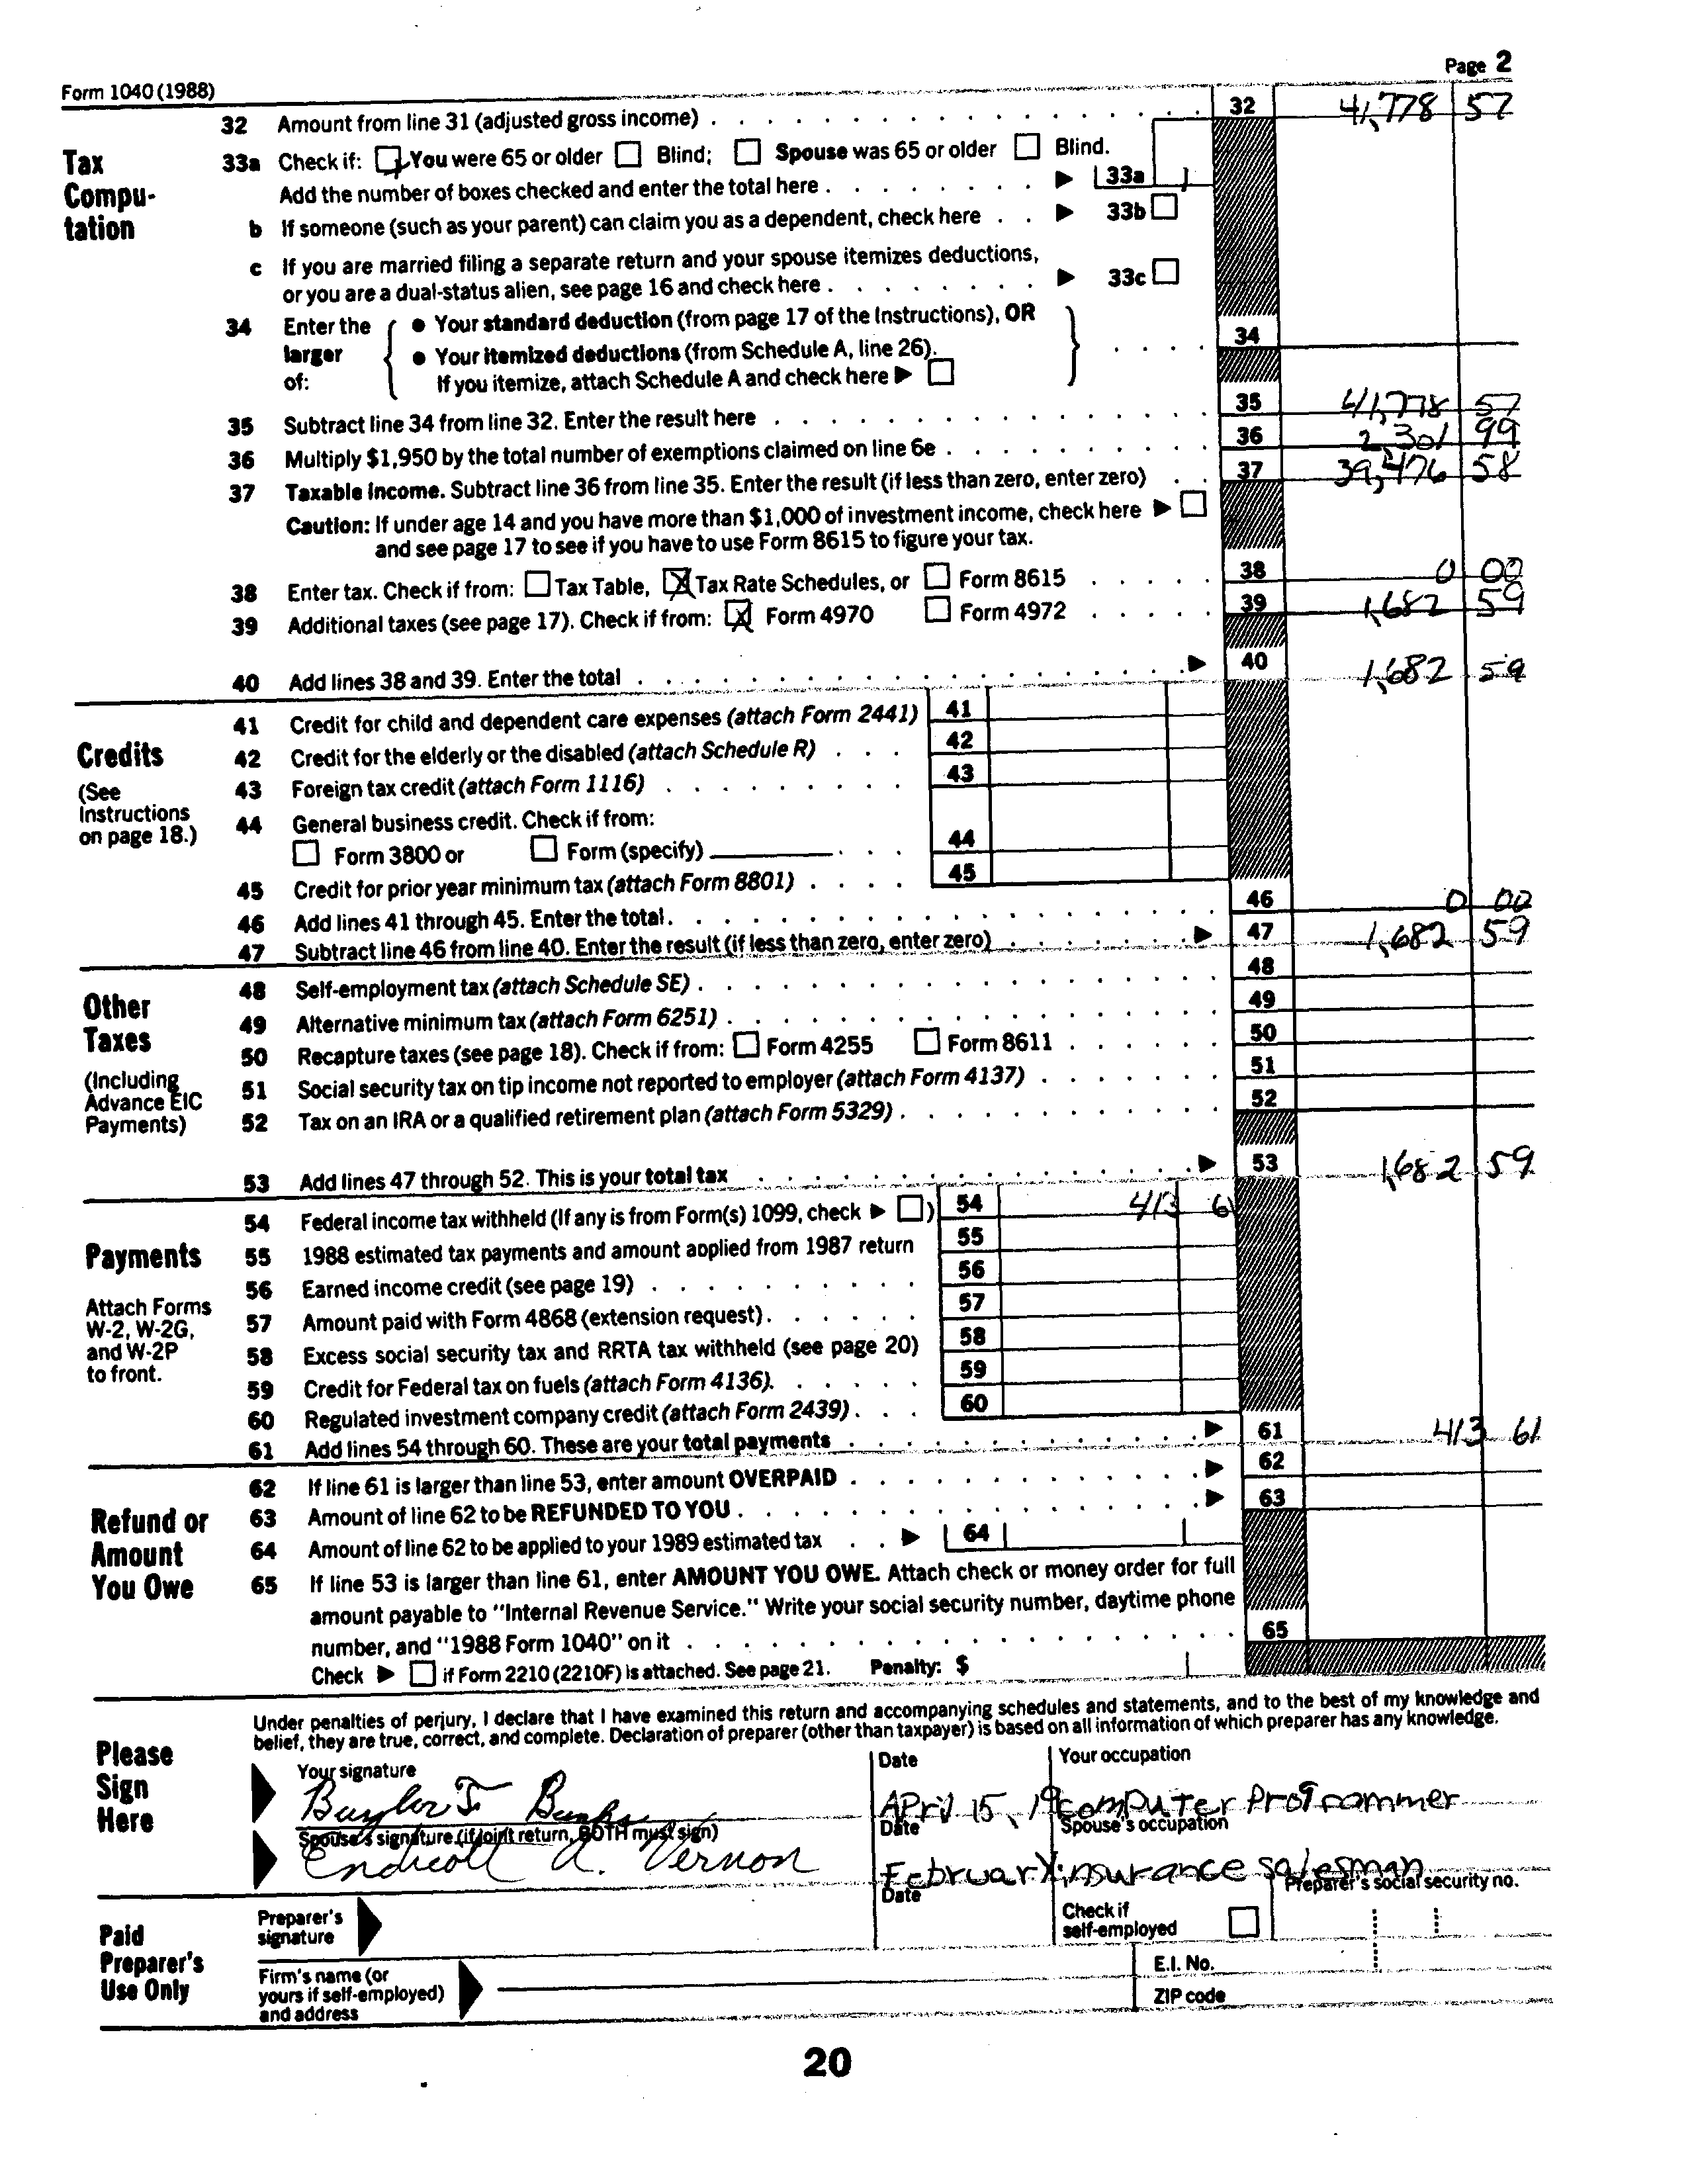 Page 2
Form 1040 (1988)
32 Amount from line 31 (adjusted gross income) 32 41,778 57
Tax Compu-tation
33a Check if: You were 65 or older Blind; Spouse was 65 or older Blind.
Add the number of boxes checked and enter the total here 33a
b If someone (such as your parent) can claim you as a dependent, check here 33b
c If you are married filing a separate return and your spouse itemizes deductions,
or you are a dual-status alien, see page 16 and check here 33c
34 Enter the larger of: • Your standard deduction (from page 17 of the Instructions), OR
• Your itemized deductions (from Schedule A, line 26). 34
If you itemize, attach Schedule A and check here
35 Subtract line 34 from line 32. Enter the result here 35 41,778 57
36 Multiply $1,950 by the total number of exemptions claimed on line 6e 36 2,301 99
37 Taxable income. Subtract line 36 from line 35. Enter the result (if less than zero, enter zero) 37 39,476 58
Caution: If under age 14 and you have more than $1,000 of investment income, check here
and see page 17 to see if you have to use Form 8615 to figure your tax.
38 Enter tax. Check if from: Tax Table, X Tax Rate Schedules, or Form 8615 38 0 00
39 Additional taxes (see page 17). Check if from: X Form 4970 Form 4972 39 1,682 59
40 Add lines 38 and 39. Enter the total 40 1,682 59
Credits
(See Instructions on page 18.)
41 Credit for child and dependent care expenses (attach Form 2441) 41
42 Credit for the elderly or the disabled (attach Schedule R) 42
43 Foreign tax credit (attach Form 1116) 43
44 General business credit. Check if from:
Form 3800 or Form (specify) 44
45 Credit for prior year minimum tax (attach Form 8801) 45
46 Add lines 41 through 45. Enter the total. 46 0 00
47 Subtract line 46 from line 40. Enter the result (if less than zero, enter zero) 47 1,682 59
Other Taxes
(Including Advance EIC Payments)
48 Self-employment tax (attach Schedule SE) 48
49 Alternative minimum tax (attach Form 6251) 49
50 Recapture taxes (see page 18). Check if from: Form 4255 Form 8611 50
51 Social security tax on tip income not reported to employer (attach Form 4137) 51
52 Tax on an IRA or a qualified retirement plan (attach Form 5329) 52
53 Add lines 47 through 52. This is your total tax 53 1,682 59
Payments
Attach Forms W-2, W-2G, and W-2P to front.
54 Federal income tax withheld (If any is from Form(s) 1099, check ) 54 413 61
55 1988 estimated tax payments and amount applied from 1987 return 55
56 Earned income credit (see page 19) 56
57 Amount paid with Form 4868 (extension request) 57
58 Excess social security tax and RRTA tax withheld (see page 20) 58
59 Credit for Federal tax on fuels (attach Form 4136). 59
60 Regulated investment company credit (attach Form 2439) 60
61 Add lines 54 through 60. These are your total payments 61 413 61
Refund or Amount You Owe
62 If line 61 is larger than line 53, enter amount OVERPAID 62
63 Amount of line 62 to be REFUNDED TO YOU 63
64 Amount of line 62 to be applied to your 1989 estimated tax 64
65 If line 53 is larger than line 61, enter AMOUNT YOU OWE. Attach check or money order for full
amount payable to "Internal Revenue Service." Write your social security number, daytime phone
number, and "1988 Form 1040" on it 65
Check if Form 2210 (2210F) is attached. See page 21. Penalty: $
Please Sign Here
Under penalties of perjury, I declare that I have examined this return and accompanying schedules and statements, and to the best of my knowledge and
belief, they are true, correct, and complete. Declaration of preparer (other than taxpayer) is based on all information of which preparer has any knowledge.
Your signature Date Your occupation
April 15, 19 computer Programmer
Spouse's signature (if joint return, BOTH must sign) Date Spouse's occupation
Endicott A. Vernon February insurance salesman
Paid Preparer's Use Only
Preparer's signature Date Check if self-employed Preparer's social security no.
Firm's name (or yours if self-employed) and address E.I. No.
ZIP code
20